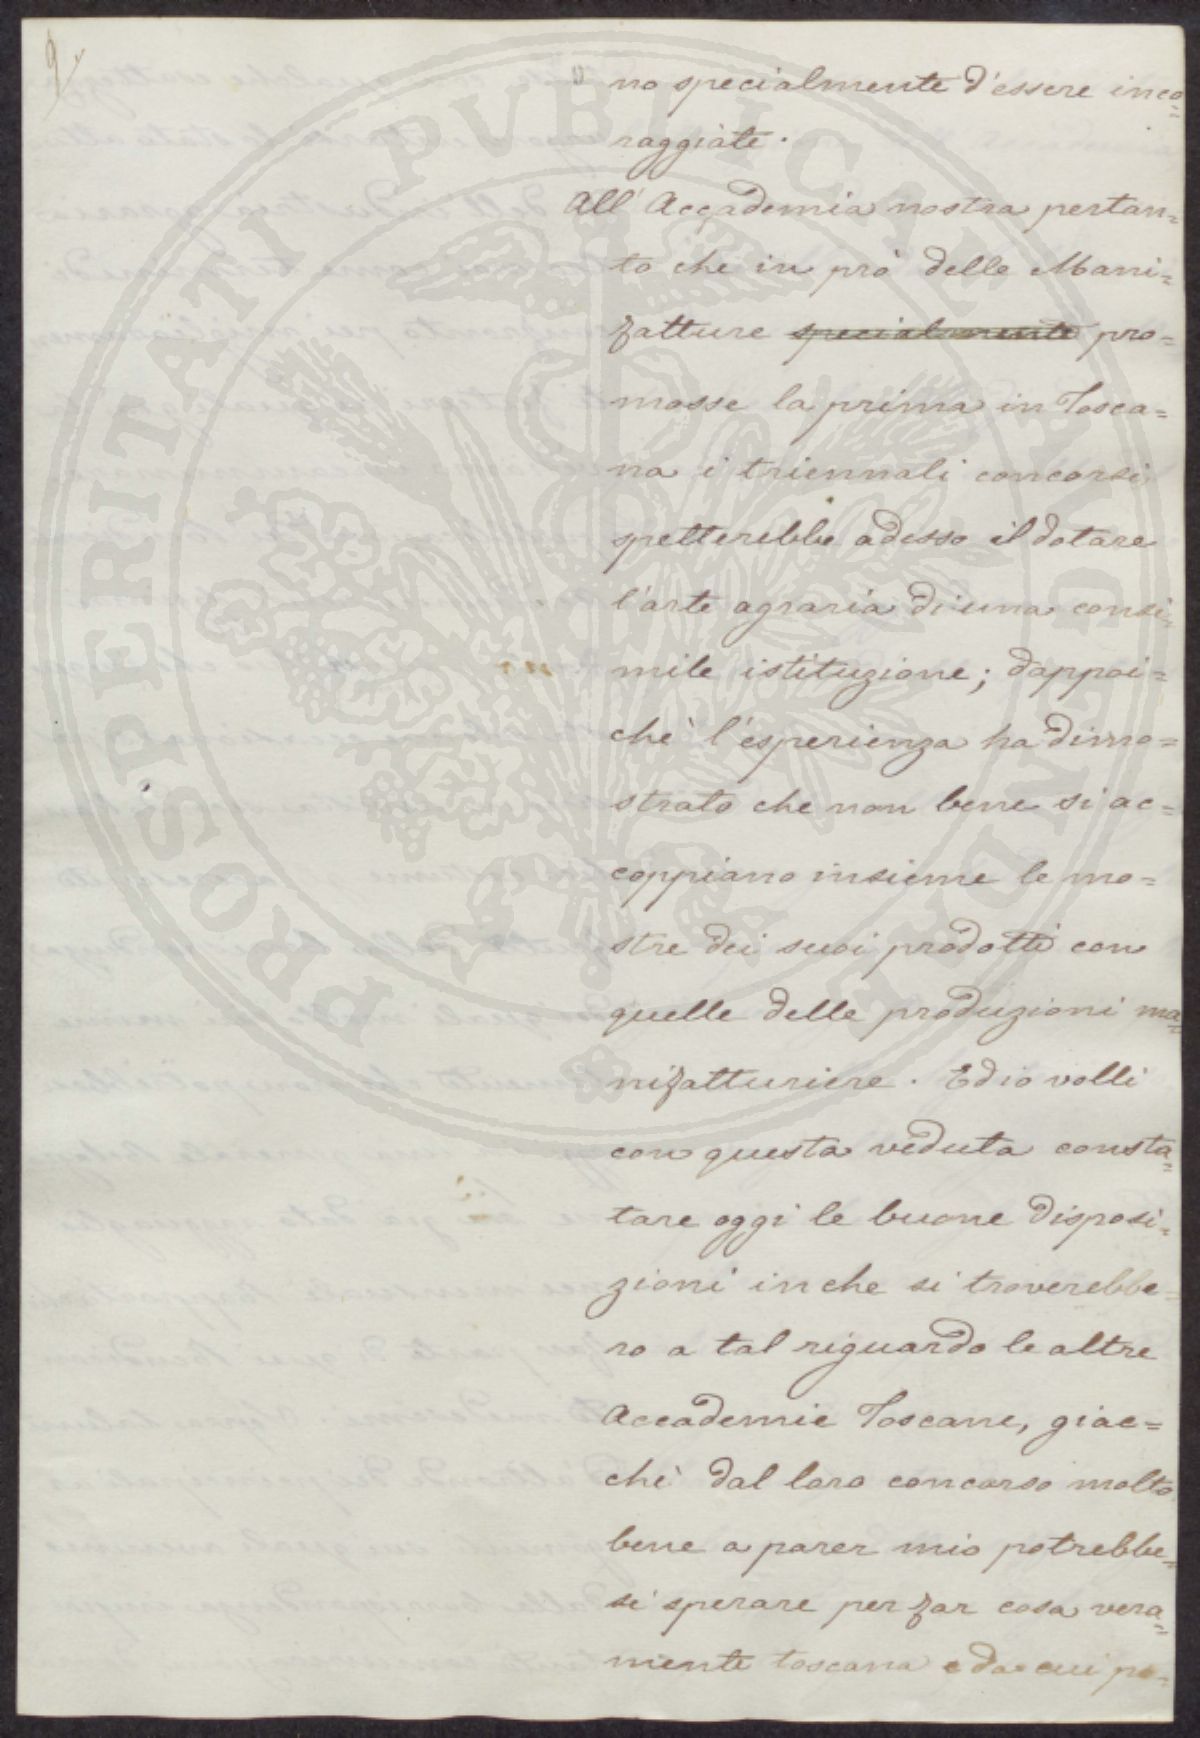 9
no specialmente d'essere inco=
raggiate.
All'Accademia nostra pertan=
to che in prò delle Mani=
fatture specialmente pro=
mosse la prima in Tosca=
na i triennali concorsi,
spetterebbe adesso il dotare
l'arte agraria di una consi=
mile istituzione; dappoi=
chè l'esperienza ha dimo=
strato che non bene si ac=
coppiano insieme le mo=
stre dei suoi prodotti con
quelle delle produzioni ma=
nifatturiere. Ed io volli
con questa veduta consta=
tare oggi le buone disposi=
zioni in che si troverebbe=
ro a tal riguardo le altre
Accademie Toscane, giac=
chè dal loro concorso molto
bene a parer mio potrebbe=
si sperare per far cosa vera=
mente toscana e da cui po=
PROSPERITATI PUBLICAE AUGENDAE